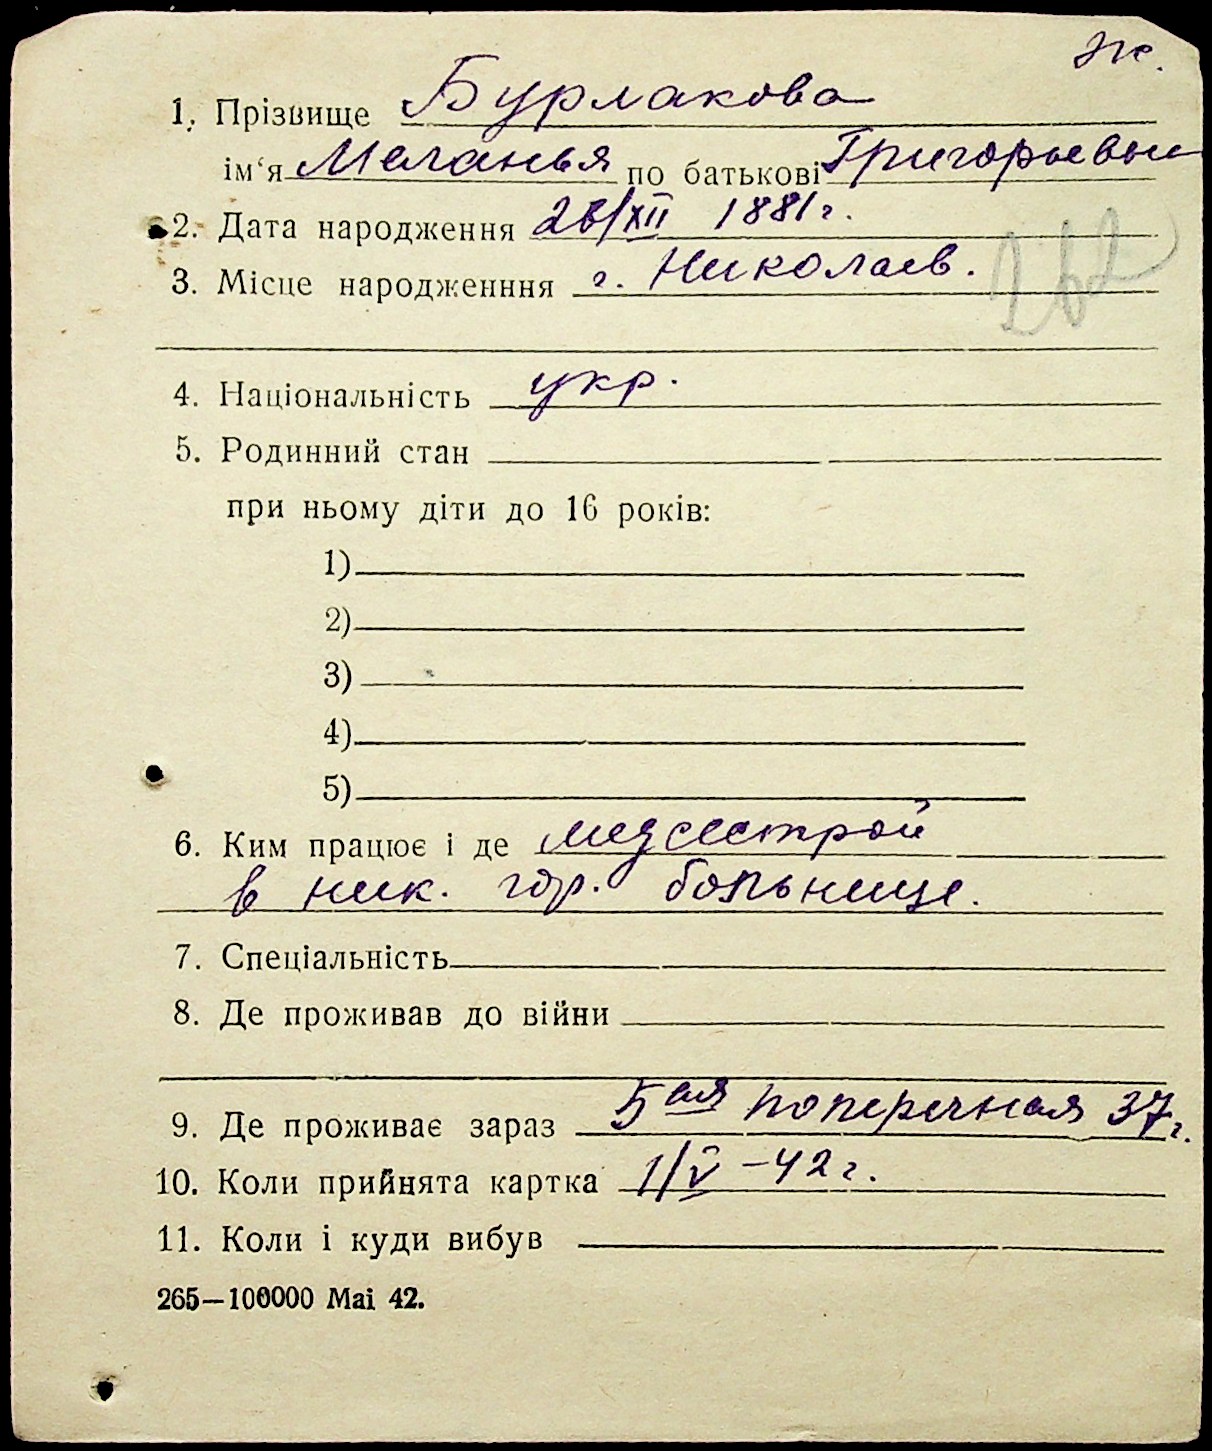 ж.
1. Прізвище Бурлакова
ім‘я Меланья по батькові Григорьевы
2. Дата народження /XII 1881 г.
3. Місце народженння г. Николаев.
262
4. Національність укр.
5. Родинний стан
при ньому діти до 16 років:
1)
2)
3)
4)
5)
6. Ким працює і де медсестрой
в ник. гор. больнице.
7. Спеціальність
8. Де проживав до війни
9. Де проживає зараз 5ая поперечная 37 г.
10. Коли прийнята картка 1/V –42 г.
11. Коли і куди вибув
265—100000 Mai 42.